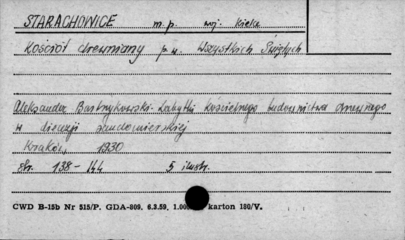 STARACHOWICE m.p. woj. Kielce
Kościół drewniany p.w. Wszystkich Świętych
Aleksander Bastrzykowski - Zabytki kościelnego budownictwa drewnianego
w diecezji sandomierskiej
Kraków, 1930
Str. 138-144 5 ilustr.
CWD B-15b Nr 515/P. GDA-809. 6.3.59. 1.00 karton 180/V.